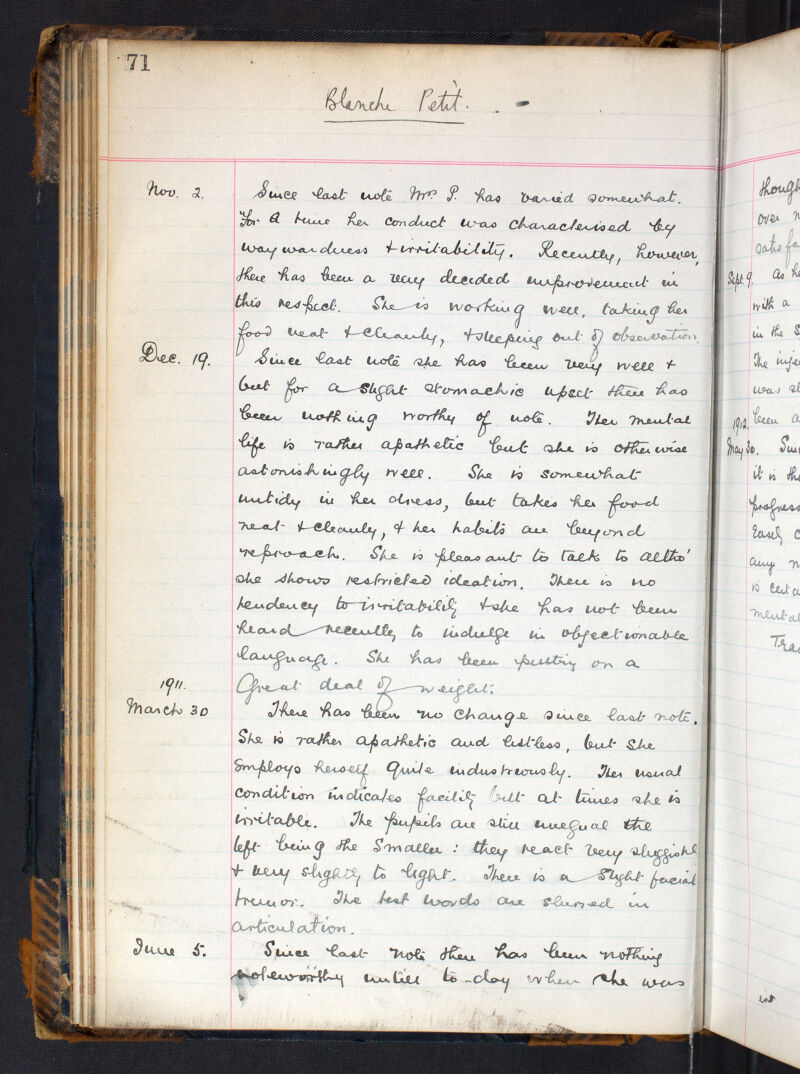 71
Blanche Petit.
Nov. 2. Since last note Mrs P. has varied somewhat.
For a time her conduct was characterised by
waywardness & irritability. Recently, however,
there has been a very decided improvement in
this respect. She is working well, taking her
food neat & cleanly, & sleeping out of observation.
Dec. 19. Since last note she has been very well &
but for a slight stomachic upset there has
been nothing worthy of note. Her mental
life is rather apathetic but she is otherwise
astonishingly well. She is somewhat
untidy in her dress, but takes her food
neat & cleanly, & her habits are beyond
reproach. She is pleasant to talk to altho'
she shows restricted ideation. There is no
tendency to irritability & she has not been
heard recently to indulge in objectionable
language. She has been putting on a
Great deal of weight.
1911.
March 30 There has been no change since last note.
She is rather apathetic and listless, but she
employs herself quite industriously. Her usual
condition indicates facility but at times she is
irritable. The pupils are still unequal the
left being the smaller: they react very sluggishly
& very slightly to light. There is a slight facial
tremor. The test words are slurred in
articulation.
June 5. Since last note there has been nothing
noteworthy until to-day when she was
though
over
satisfa
Sept. 9. As he
with a
in the
The inje
was
been a
1912.
May 30. Sin
it is
progress
easily
any
is certa
mental
Tra